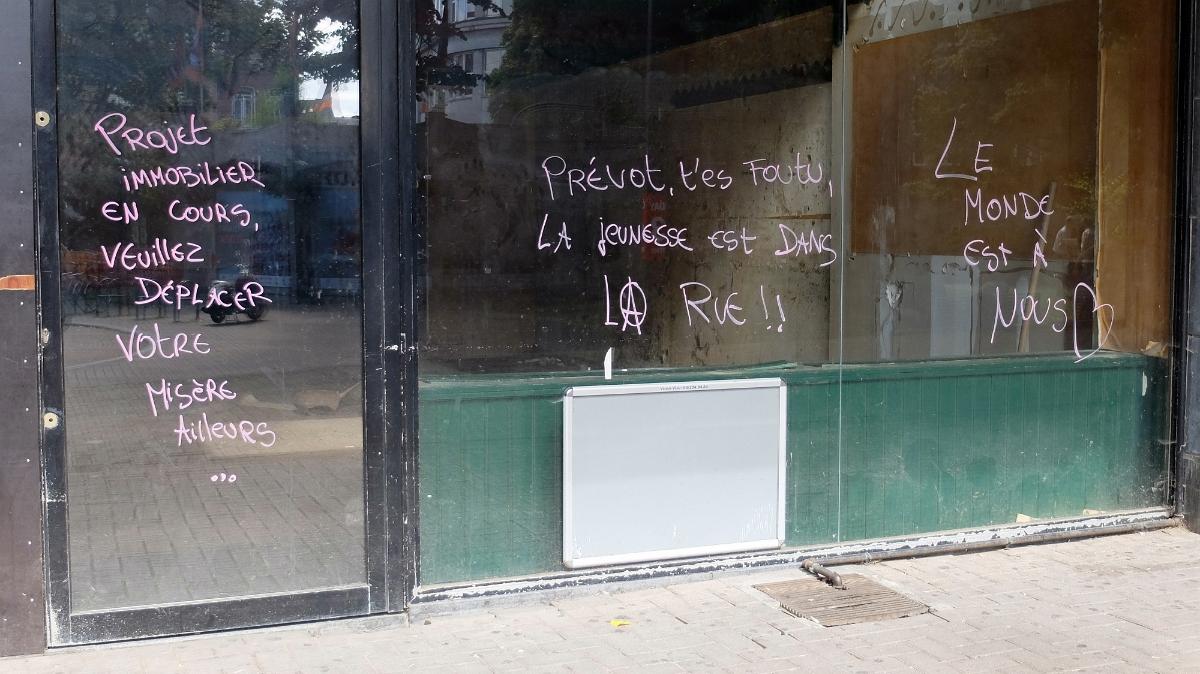 Projet
immobilier
en cours,
veuillez
Déplacer
Votre
Misère
Ailleurs
...
Prévot, t'es Foutu,
La jeunesse est Dans
La Rue !!
Le
Monde
est à
Nous